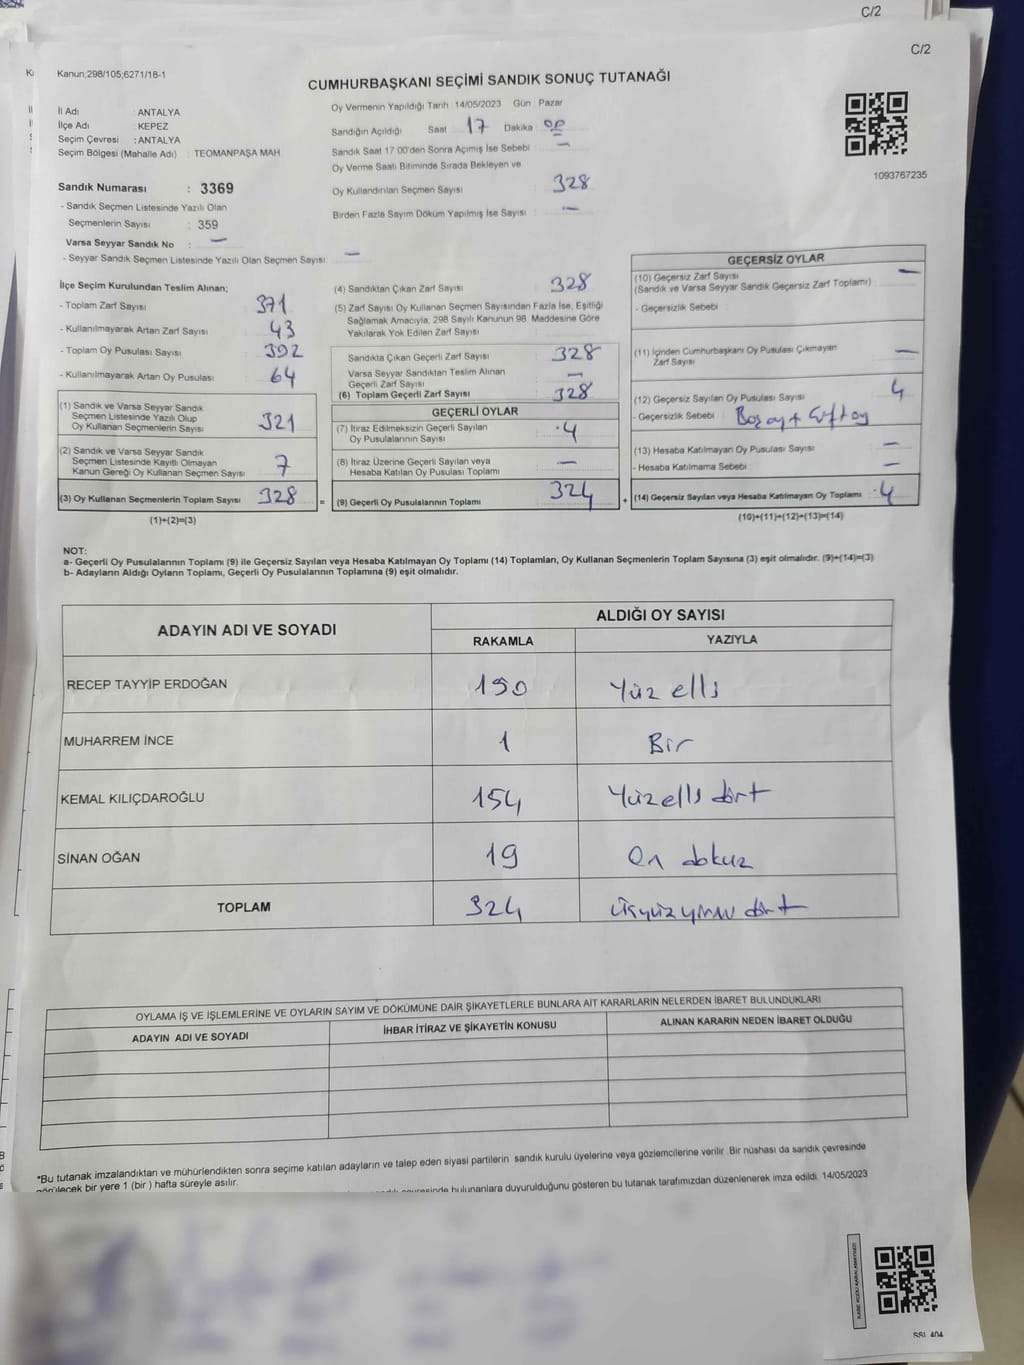 C/2
C/2
Kanun;298/105;6271/18-1
CUMHURBAŞKANI SEÇİMİ SANDIK SONUÇ TUTANAĞI
İl Adı : ANTALYA
İlçe Adı : KEPEZ
Seçim Çevresi : ANTALYA
Seçim Bölgesi (Mahalle Adı) : TEOMANPAŞA MAH.
Oy Vermenin Yapıldığı Tarih :14/05/2023 Gün : Pazar
Sandığın Açıldığı Saat 17 Dakika 00
Sandık Saat 17:00'den Sonra Açımış İse Sebebi : —
Oy Verme Saati Bitiminde Sırada Bekleyen ve
Oy Kullandırılan Seçmen Sayısı : 328
Birden Fazla Sayım Döküm Yapılmış İse Sayısı : —
1093767235
Sandık Numarası : 3369
- Sandık Seçmen Listesinde Yazılı Olan
Seçmenlerin Sayısı : 359
Varsa Seyyar Sandık No : —
- Seyyar Sandık Seçmen Listesinde Yazılı Olan Seçmen Sayısı : —
İlçe Seçim Kurulundan Teslim Alınan;
- Toplam Zarf Sayısı : 371
- Kullanılmayarak Artan Zarf Sayısı : 43
- Toplam Oy Pusulası Sayısı : 392
- Kullanılmayarak Artan Oy Pusulası : 64
(1) Sandık ve Varsa Seyyar Sandık
Seçmen Listesinde Yazılı Olup
Oy Kullanan Seçmenlerin Sayısı : 321
(2) Sandık ve Varsa Seyyar Sandık
Seçmen Listesinde Kayıtlı Olmayan
Kanun Gereği Oy Kullanan Seçmen Sayısı : 7
(3) Oy Kullanan Seçmenlerin Toplam Sayısı : 328 =
(1)+(2)=(3)
(4) Sandıktan Çıkan Zarf Sayısı : 328
(5) Zarf Sayısı Oy Kullanan Seçmen Sayısından Fazla İse, Eşitliği
Sağlamak Amacıyla; 298 Sayılı Kanunun 98. Maddesine Göre
Yakılarak Yok Edilen Zarf Sayısı :
Sandıkta Çıkan Geçerli Zarf Sayısı : 328
Varsa Seyyar Sandıktan Teslim Alınan
Geçerli Zarf Sayısı : —
(6) Toplam Geçerli Zarf Sayısı : 328
GEÇERLİ OYLAR
(7) İtiraz Edilmeksizin Geçerli Sayılan
Oy Pusulalarının Sayısı : 4
(8) İtiraz Üzerine Geçerli Sayılan veya
Hesaba Katılan Oy Pusulası Toplamı : —
(9) Geçerli Oy Pusulalarının Toplamı : 324 +
GEÇERSİZ OYLAR
(10) Geçersiz Zarf Sayısı : —
(Sandık ve Varsa Seyyar Sandık Geçersiz Zarf Toplamı)
- Geçersizlik Sebebi :
(11) İçinden Cumhurbaşkanı Oy Pusulası Çıkmayan
Zarf Sayısı : —
(12) Geçersiz Sayılan Oy Pusulası Sayısı : 4
- Geçersizlik Sebebi : Boş oy +
(13) Hesaba Katılmayan Oy Pusulası Sayısı : —
- Hesaba Katılmama Sebebi : —
(14) Geçersiz Sayılan veya Hesaba Katılmayan Oy Toplamı : 4
(10)+(11)+(12)+(13)=(14)
NOT:
a- Geçerli Oy Pusulalarının Toplamı (9) ile Geçersiz Sayılan veya Hesaba Katılmayan Oy Toplamı (14) Toplamları, Oy Kullanan Seçmenlerin Toplam Sayısına (3) eşit olmalıdır. (9)+(14)=(3)
b- Adayların Aldığı Oyların Toplamı, Geçerli Oy Pusulalarının Toplamına (9) eşit olmalıdır.
ADAYIN ADI VE SOYADI
ALDIĞI OY SAYISI
RAKAMLA YAZIYLA
RECEP TAYYİP ERDOĞAN 150 Yüz elli
MUHARREM İNCE 1 Bir
KEMAL KILIÇDAROĞLU 154 Yüz elli dört
SİNAN OĞAN 19 On dokuz
TOPLAM 324 üçyüz yirmi dört
OYLAMA İŞ VE İŞLEMLERİNE VE OYLARIN SAYIM VE DÖKÜMÜNE DAİR ŞİKAYETLERLE BUNLARA AİT KARARLARIN NELERDEN İBARET BULUNDUKLARI
ADAYIN ADI VE SOYADI İHBAR İTİRAZ VE ŞİKAYETİN KONUSU ALINAN KARARIN NEDEN İBARET OLDUĞU
*Bu tutanak imzalandıktan ve mühürlendikten sonra seçime katılan adayların ve talep eden siyasi partilerin sandık kurulu üyelerine veya gözlemcilerine verilir .Bir nüshası da sandık çevresinde
görülecek bir yere 1 (bir ) hafta süreyle asılır.
çevresinde bulunanlara duyurulduğunu gösteren bu tutanak tarafımızdan düzenlenerek imza edildi. 14/05/2023